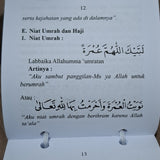 12
serta kejahatan yang ada di dalamnya"
E. Niat Umrah dan Haji
I. Niat Umrah :
لَبَّيْكَ اللَّهُمَّ عُمْرَةً
Labbaika Allahumma 'umratan
Artinya :
"Aku sambut panggilan-Mu ya Allah untuk
berumrah"
Atau :
نَوَيْتُ الْعُمْرَةَ وَأَحْرَمْتُ بِهَا لِلَّهِ تَعَالَى
"Aku niat umrah dengan berihram karena Allah
ta'ala"
13